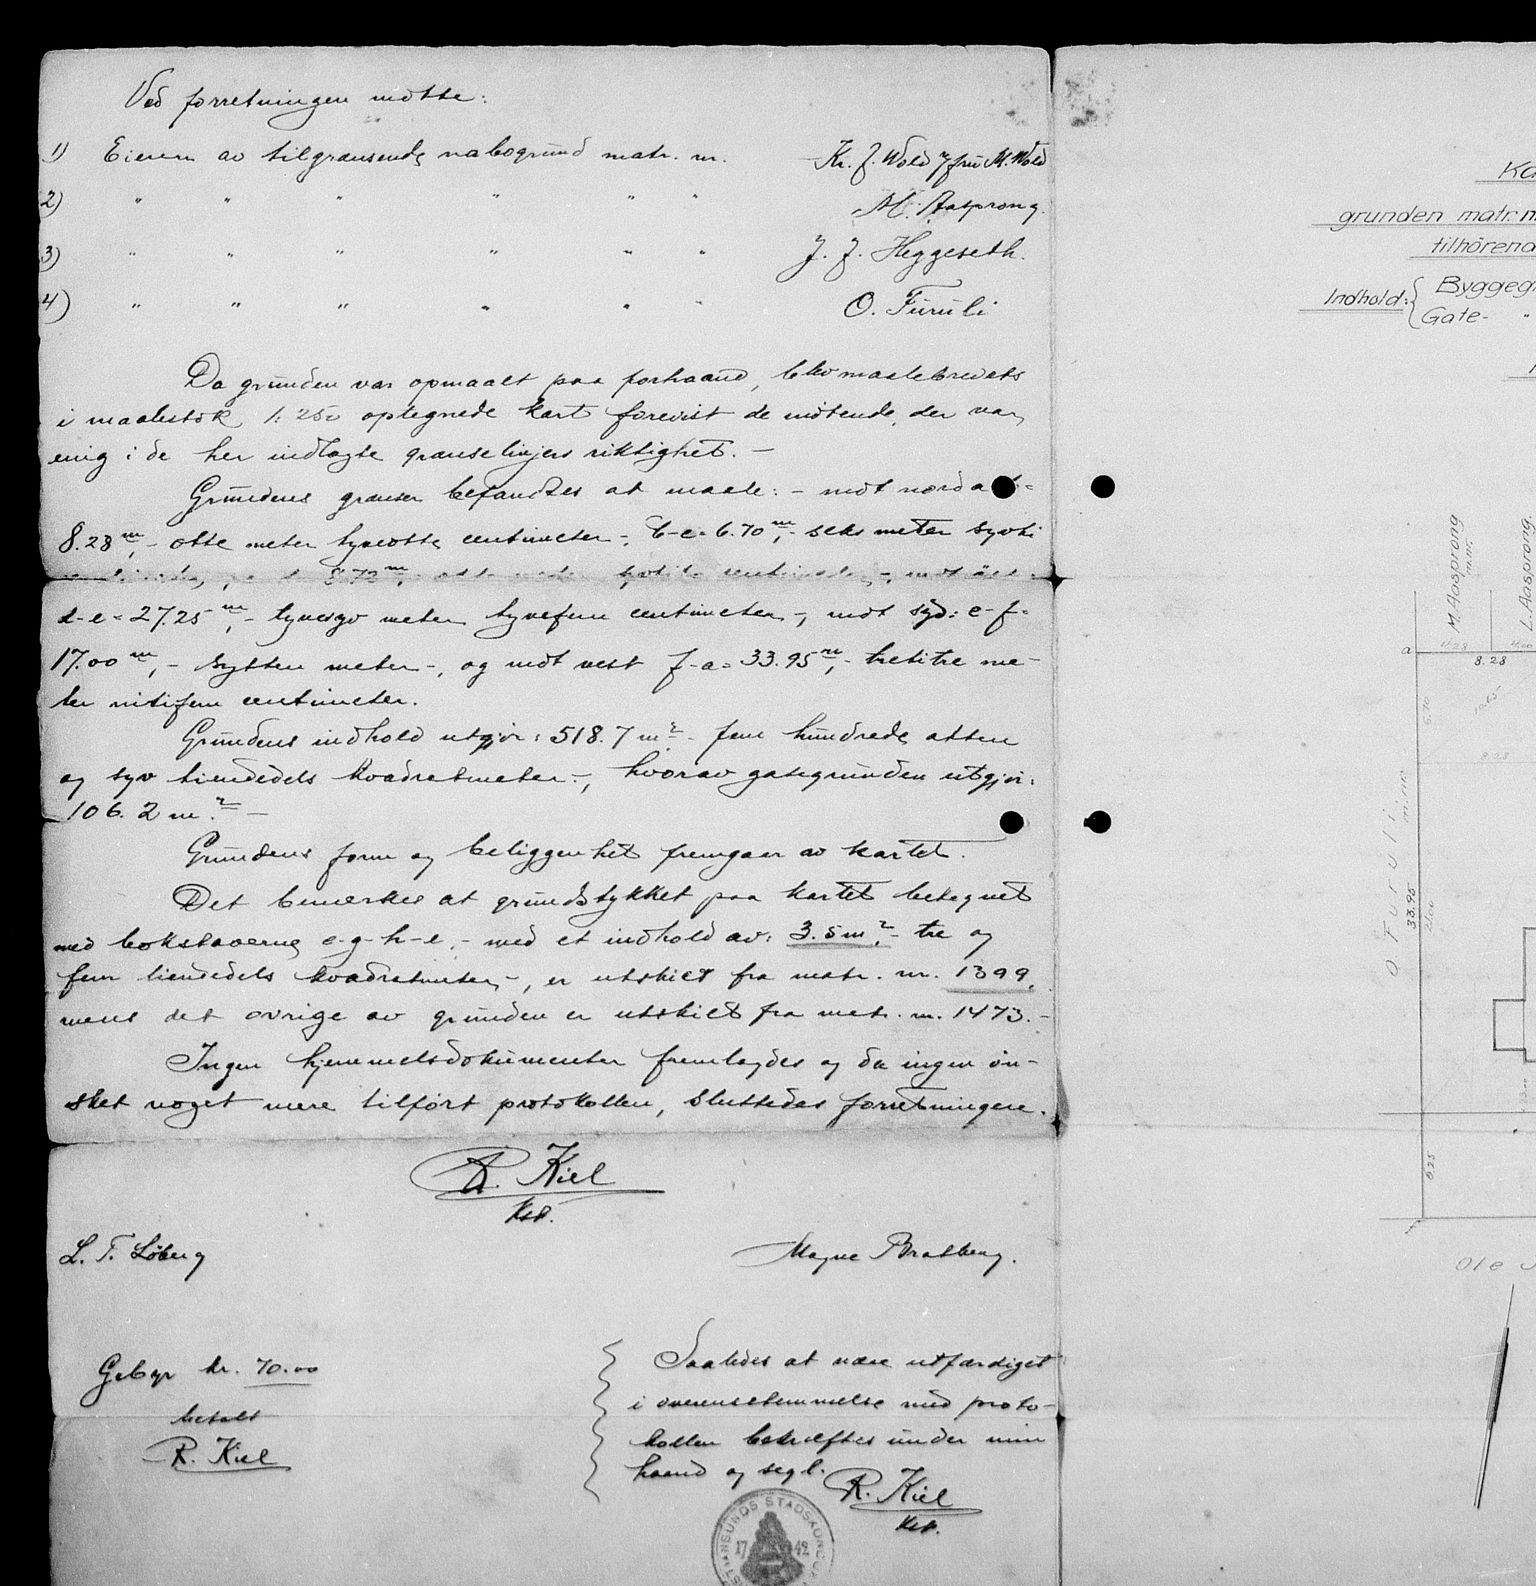 Ved forretningen møtte:
1) Eieren av tilgrænsende nabogrund matr. nr. Kr. J. Wold v/ fru M. Wold
2) " " " " " " M. Aasprong.
3) " " " " " " J. J. Heggeseth.
4) " " " " " " O. Furuli
Da grunden var opmaalt paa forhaand, blev maalebrevets
i maalestok 1:250 optegnede kart forevist de møtende, der var
enig i de her indlagte grænselinjers riktighet. —
Grundens grænser befandtes at maale: - mot nord a
8.28 m, - otte meter tyveotte centimeter -, b-c= 6.70 m, - seks meter sytti
8.72 m, - otte centimeter -, mot øst:
d-e = 27.25 m, - tyvesyv meter tyvefem centimeter -, mot syd: e-f=
17.00 m, - sytten meter -, og mot vest f-a = 33.95 m, - trettitre me-
ter nittifem centimeter.
Grundens indhold utgjør: 518.7 m² - fem hundrede atten
og syv tiendedels kvadratmeter -, hvorav gategrunden utgjør:
106.2 m². —
Grundens form og beliggenhet fremgaar av kartet.
Det bemerkes at grundstykket paa kartet betegnet
med bokstaverne e-g-h-e, - med et indhold av: 3.5 m², - tre og
fem tiendedels kvadratmeter -, er utskilt fra matr. nr. 1399,
mens det øvrige av grunden er utskilt fra matr. nr. 1473. -
Ingen hjemmelsdokumenter fremlagdes og da ingen øn-
sket noget mere tilført protokollen, sluttedes forretningen.
R. Kiel
Kst.
L. T. Løberg
Magne Bratberg.
Gebyr kr. 70.00
betalt
R. Kiel
Saaledes at være utfærdiget
i overensstemmelse med proto-
kollen bekræftes under min
haand og segl.
R. Kiel
Kst.
STIANSUNDS STADSKONDUKT
17 42
Ka
grunden matr. n
tilhörend
Indhold: Byggeg
Gate- "
M. Aasprong
m.nr.
L. Aasprong.
a
8.28
6.70
10.65
8.28
O Furuli
m.nr.
33.95
6.25
f
Ole